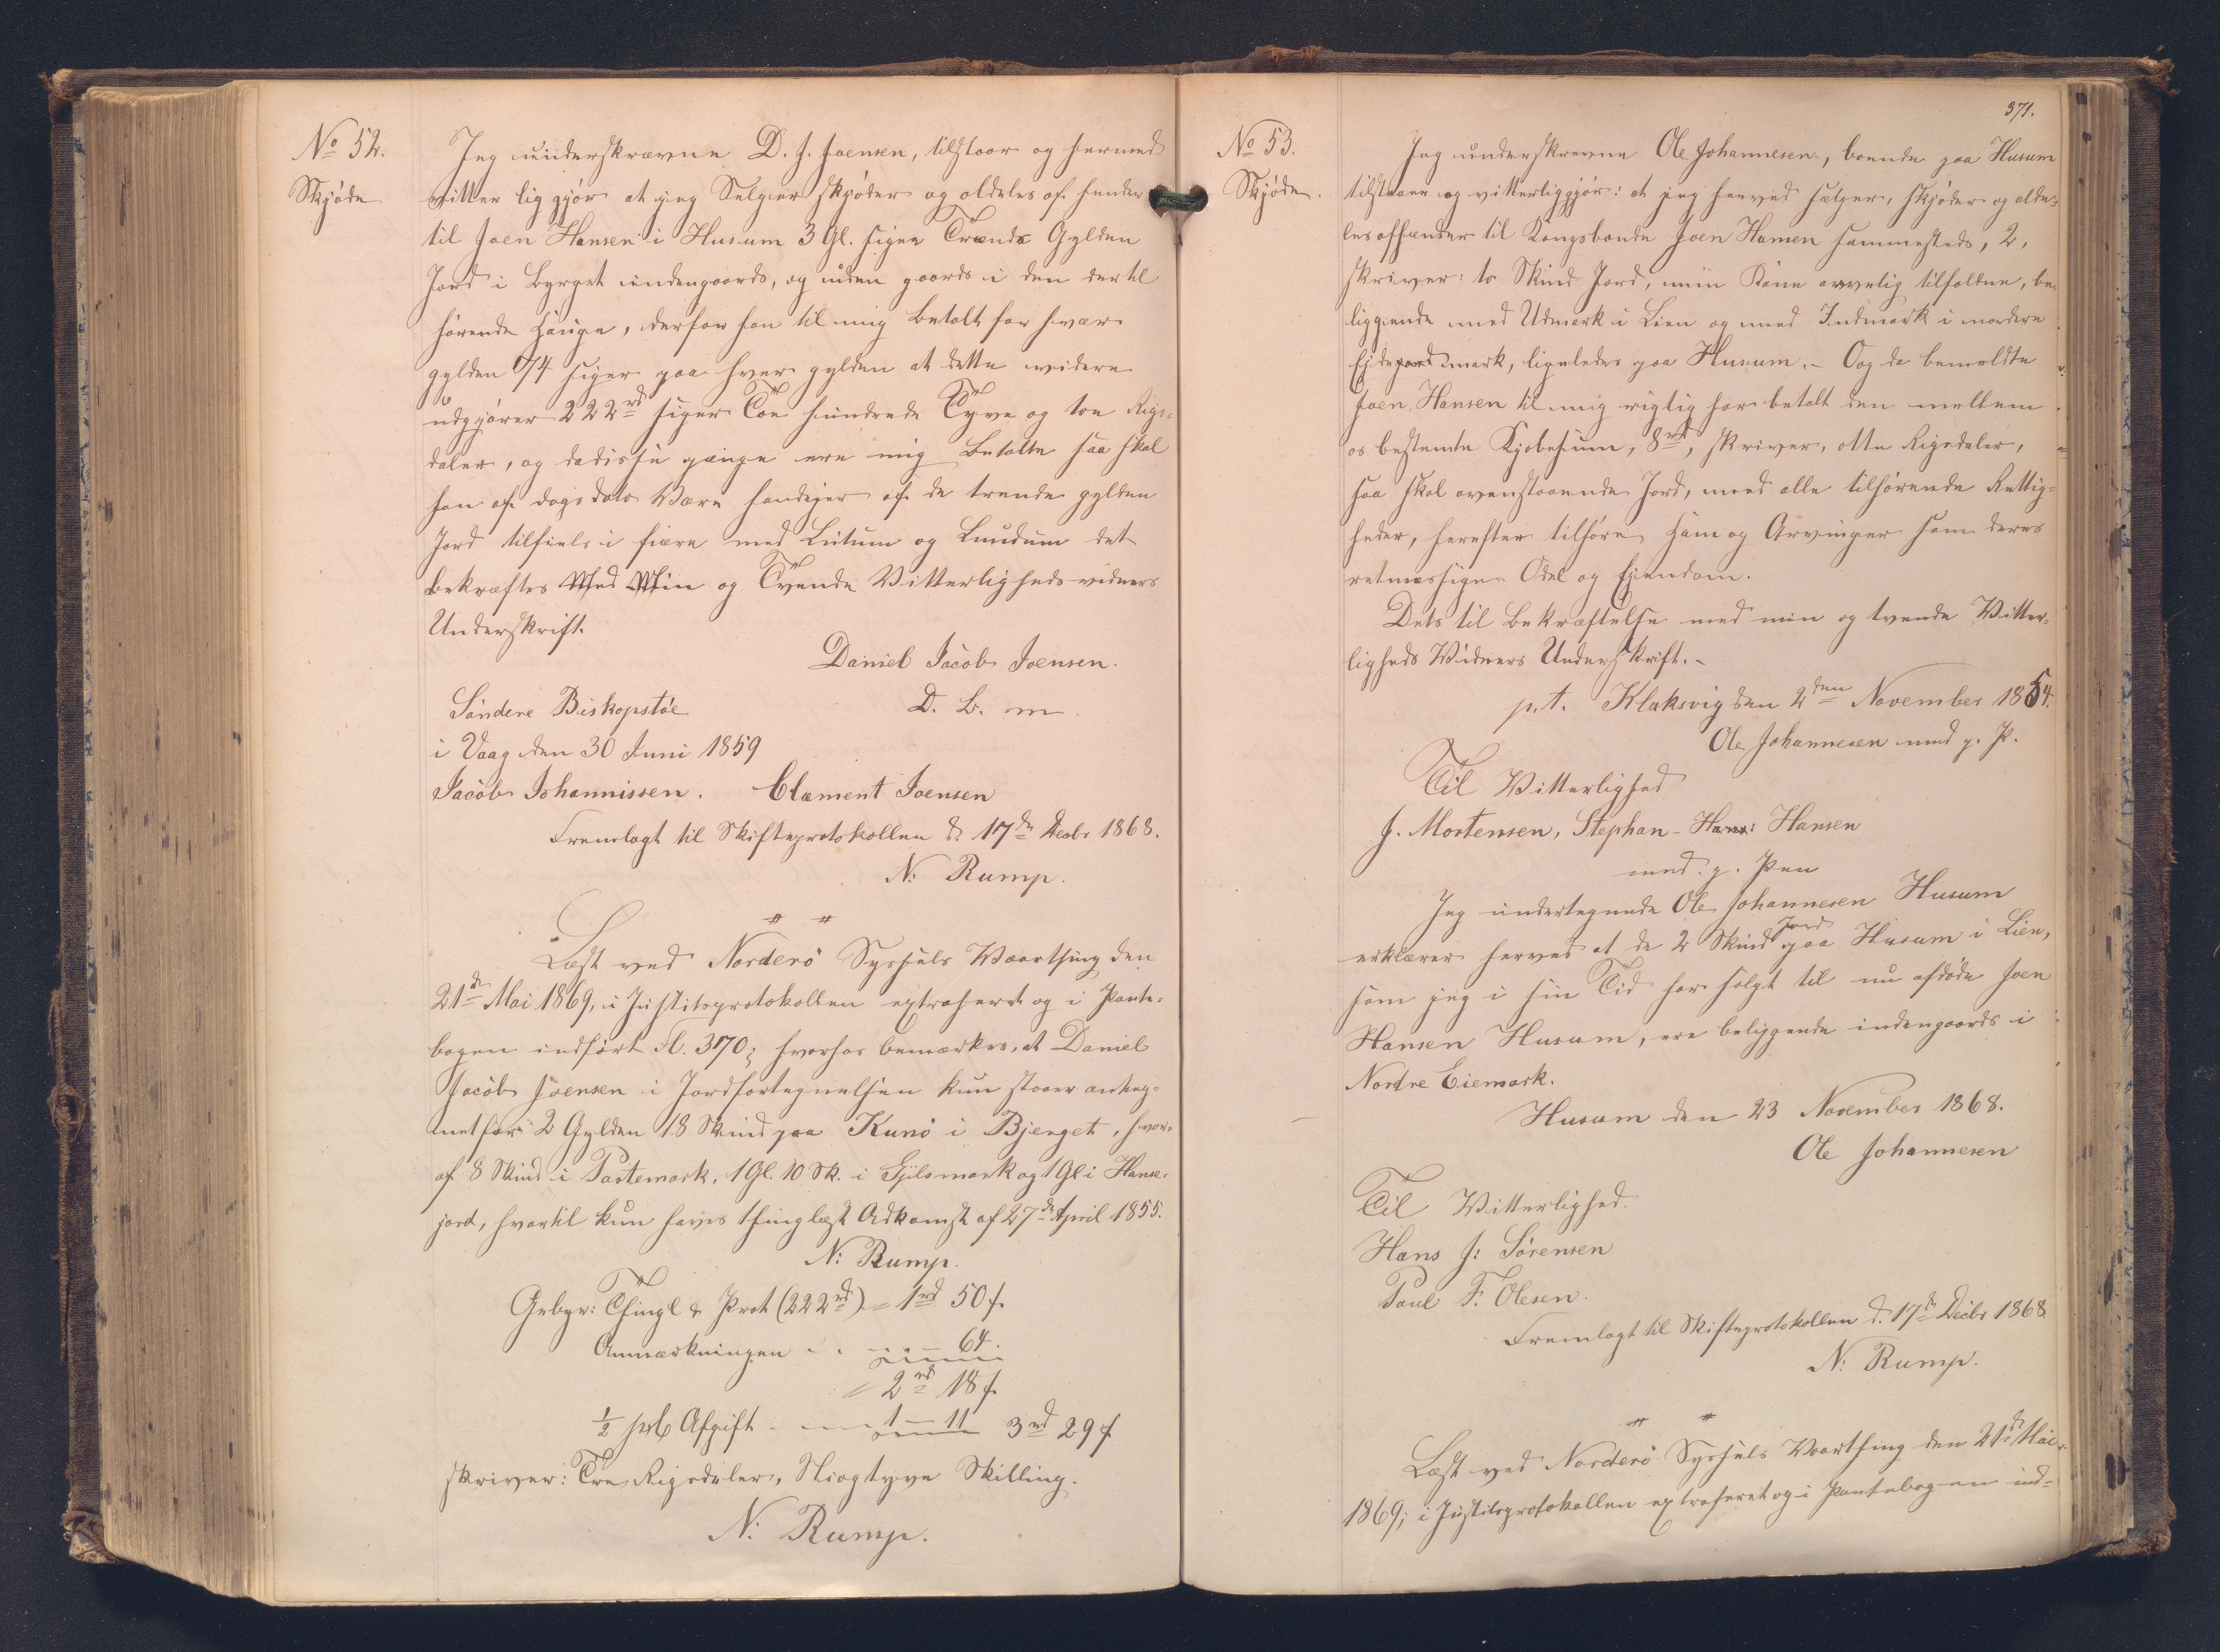 No 52.
Skjöde
Jeg underskrævne D. J. Joensen, tilstaar og hermed
vitter lig gjör at jeg Selger skjöder og aldeles af hender
til Joen Hansen i Husum 3 Gl. siger Trende Gylden
Jord i Byrget indengaards, og uden gaards i den dertil
hörende Hauge, derfor han til mig Betalt for hvær
gylden 74 siger paa hver gylden at dette videre
udgjörer 222 rd siger Toe hundrede Tyve og toe Rigs=
daler, og da disse penge ere mig Betalte saa skal
han af dags dato Være handejer af de trende gylden
Jord tilfiels i fiære med Lutum og Lundum det
bekræftes Med Min og Tvende Vitterligheds-vidners
Underskrift.
Daniel Jacob Joensen.
Söndere Biskopstöe
D. L. m.
i Vaag den 30 Juni 1859
Jacob Johannissen. Clæment Joensen
Fremlagt til Skifteprotokollen d. 17de Decbr 1868.
N: Rump.
Læst ved Norderö Syssels Vaarthing den
21de Mai 1869, i Justitsprotokollen extraheret og i Pante-
bogen indfört Fl. 370; hvorhos bemærkes, at Daniel
Jacob Joensen i Jordfortegnelsen kun staaer anteg=
net for 2 Gylden 18 Skind paa Kunö i Bjerget, hvor=
af 8 Skind i Partemark, 1 Gl. 10 Sk. i Gjilsmark og 1 Gl i Hanse=
jord, hvortil kun haves thinglæst Adkomst af 27de April 1855.
N: Rump.
Gebyr: Thingl & Prot (222 rd) = 1 rd 50 s.
Anmærkningen - - - 64.
= 2 rd 18 s
1/2 prC Afgift - - 1 - 11 3 rd 29 s
skriver: Tre Rigsdaler, Niogtyve Skilling.
N: Rump.
371.
No 53.
Skjöde.
Jeg underskrevne Ole Johannesen, boende paa Husum
tilstaaer og vitterliggjör: at jeg herved sælger, skjöder og alde=
les afhænder til Kongsbonde Joen Hansen sammesteds, 2,
skriver: to Skind Jord, min Kone arvelig tilfaldne, be
liggende med Udmark i Lien og med Indmark i nordere
Eidejord mark, ligeledes paa Husum. - Oog da bemeldte
Joen Hansen til mig rigtig har betalt den mellem
os bestemte Kjöbesum, 8 rd, skriver, otte Rigsdaler,
saa skal ovenstaaende Jord, med alle tilhörende Rettig=
heder, herefter tilhöre ham og Arvinger som deres
retmæssige Odel og Eiendom.
Dets til Bekræftelse med min og tvende Vitter=
ligheds Vidners Underskrift. -
p.t. Klaksvig den 2den November 1854.
Ole Johannesen med p. P.
Til Vitterlighed
J. Mortensen, Stephan - Hans: Hansen
med: p. Pen
Jeg undertegnede Ole Johannesen Husum
erklærer herved at de 2 Skind Jord paa Husum i Lien,
som jeg i sin Tid har solgt til nu afdöde Joen
Hansen Husum, ere beliggende indengaards i
Nordre Eiemark.
Husum den 23 November 1868.
Ole Johannesen
Til Vitterlighed.
Hans J: Sörensen
Poul F. Olesen.
Fremlagt til Skifteprotokollen d. 17de Decbr 1868
N: Rump.
Læst ved Norderö Syssels Vaarthing den 21de Mai
1869; i Justitsprotokollen extraheret og i Pantebogen ind=